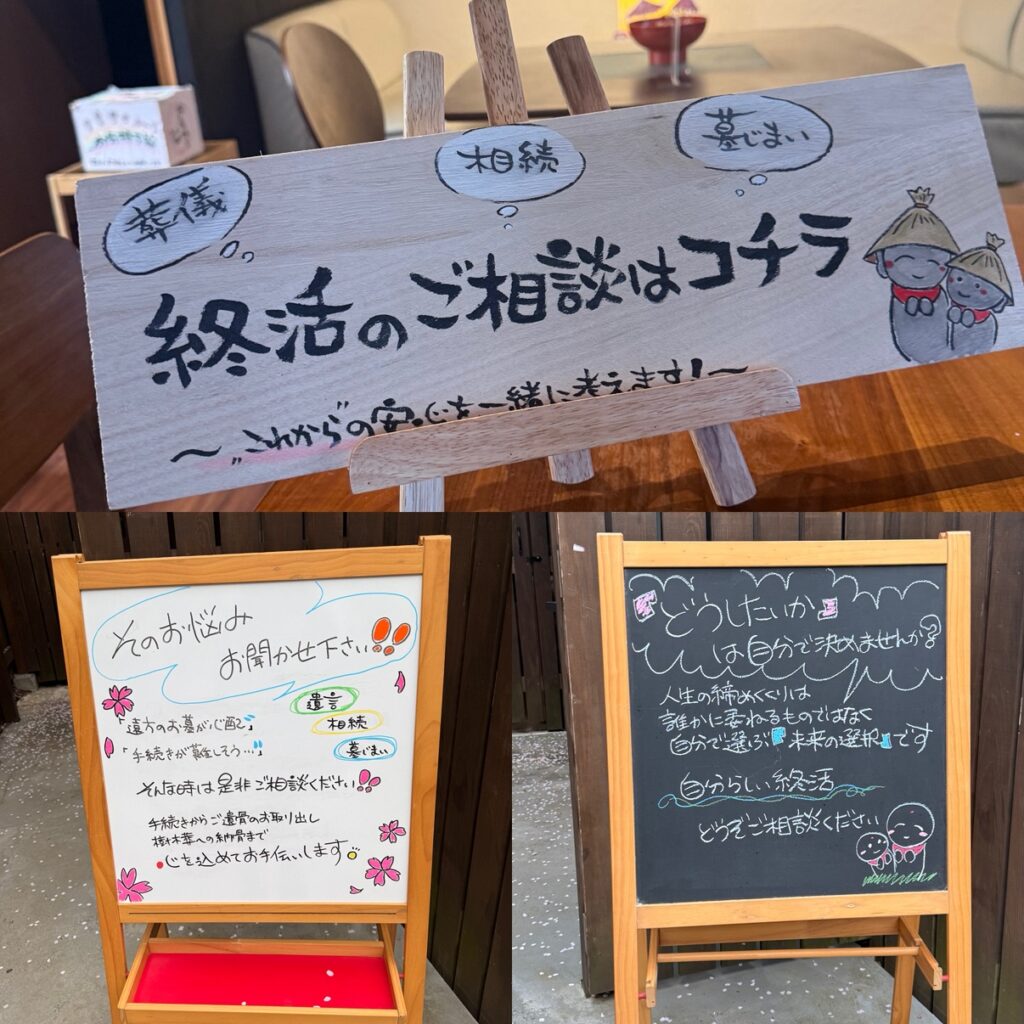 葬儀
相続
墓じまい
終活のご相談はコチラ
〜"これから"の安心を一緒に考えます!〜
そのお悩み
お聞かせ下さい
遺言
相続
墓じまい
「遠方のお墓が心配で」
「手続きが難しそう…」
そんな時は是非ご相談ください
手続きからご遺骨のお取り出し
樹木葬への納骨まで
心を込めてお手伝いします
『どうしたいか』
は自分で決めませんか?
人生の締めくくりは
誰かに委ねるものではなく
自分で選ぶ『未来の選択』です
自分らしい終活
どうぞご相談ください